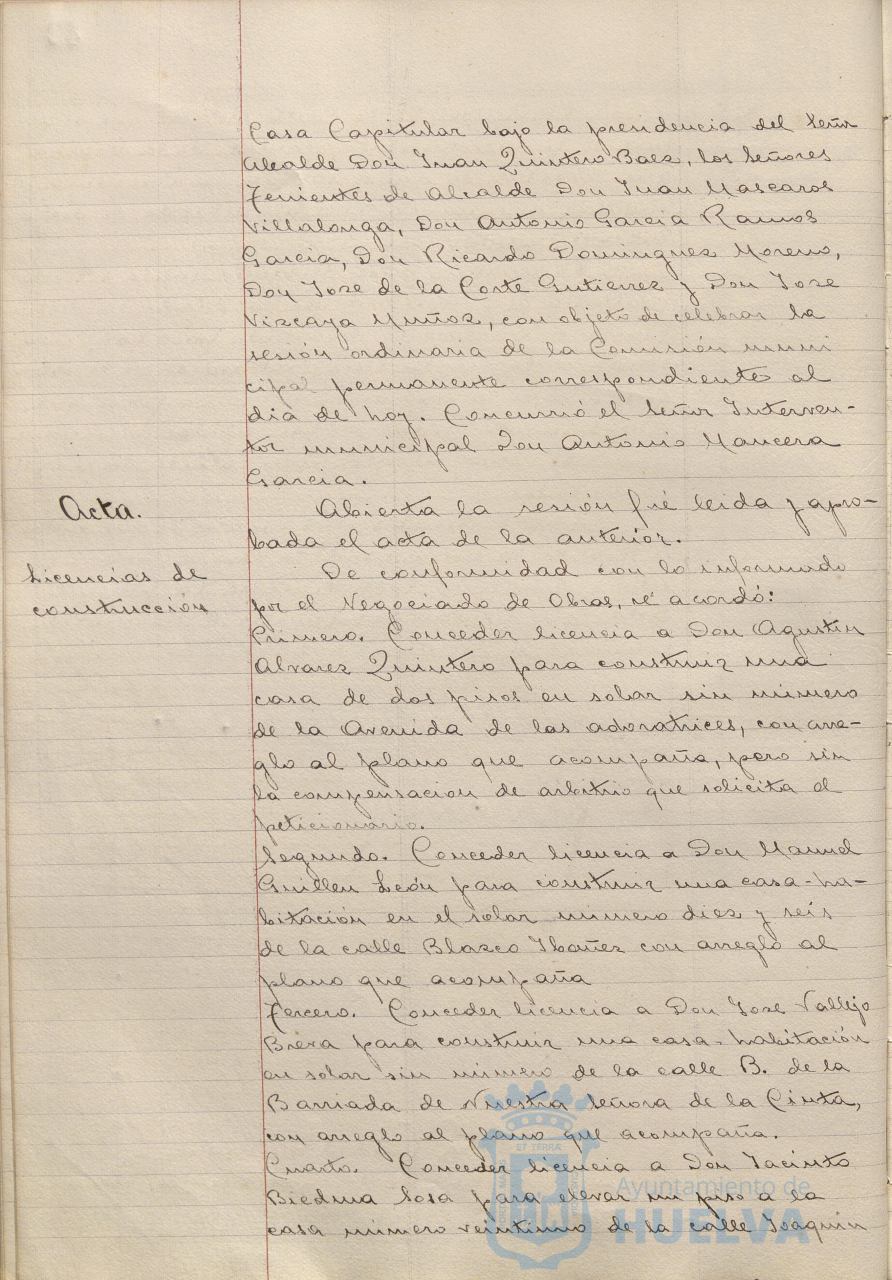 Casa Capitular bajo la presidencia del Señor
Alcalde Don Juan Quintero Baez, los Señores
Tenientes de Alcalde Don Juan Mascaros
Villalonga, Don Antonio Garcia Ramos
Garcia, Don Ricardo Dominguez Moreno,
Don Jose de la Corte Gutierrez y Don Jose
Vizcaya Muñoz, con objeto de celebrar la
sesión ordinaria de la Comisión muni
cipal permanente correspondiente al
dia de hoy. Concurrió el Señor Interven-
tor municipal Don Antonio Mancera
Garcia.
Acta.
Abierta la sesión fué leida y apro-
bada el acta de la anterior.
Licencias de
construcción
De conformidad con lo informado
por el Negociado de Obras, se acordó:
Primero. Conceder licencia a Don Agustin
Alvarez Quintero para construir una
casa de dos pisos en solar sin número
de la Avenida de las adoratrices, con arre-
glo al plano que acompaña, pero sin
la compensacion de arbitrio que solicita el
peticionario.
Segundo. Conceder licencia a Don Manuel
Guillen León para construir una casa-ha-
bitación en el solar número diez y seis
de la calle Blasco Ibañez con arreglo al
plano que acompaña
Tercero. Conceder licencia a Don Jose Vallejo
Brera para construir una casa-habitación
en solar sin número de la calle B. de la
Barriada de Nuestra Señora de la Cinta,
con arreglo al plano que acompaña.
Cuarto. Conceder licencia a Don Jacinto
Biedma Sosa para elevar un piso a la
casa número veintiuno de la calle Joaquin
Ayuntamiento de
HUELVA